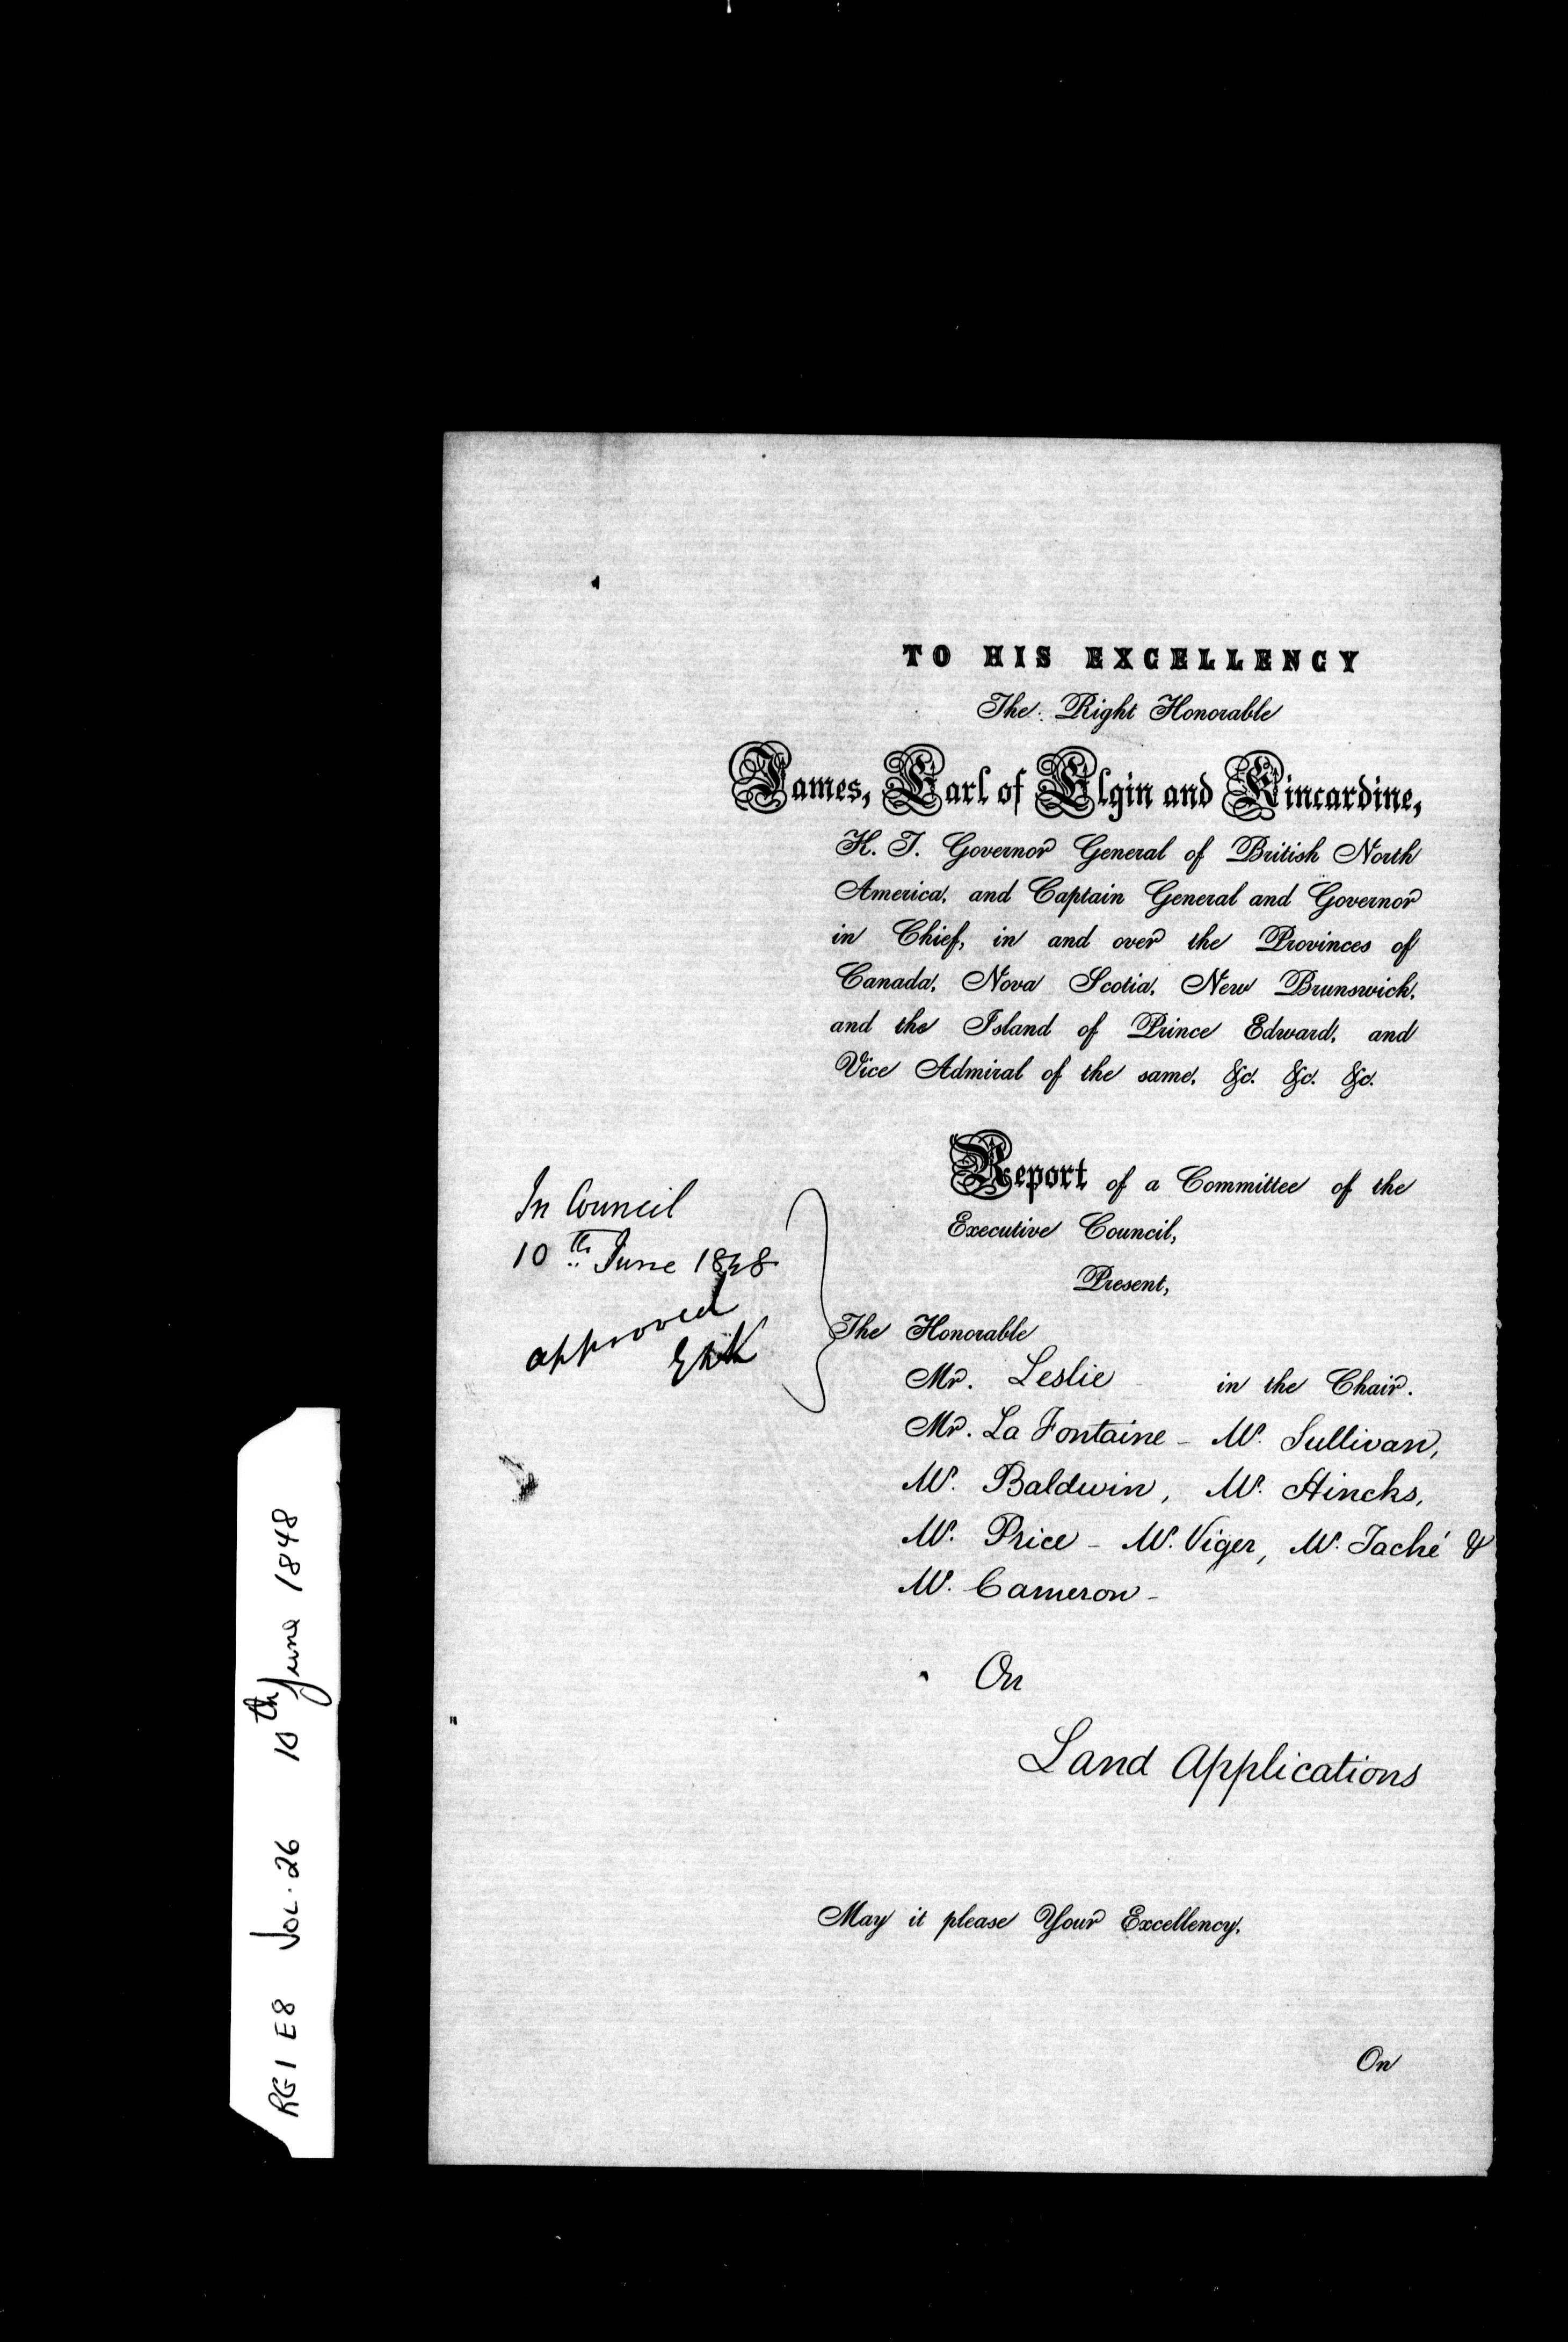 TO HIS EXCELLENCY
The Right Honorable
James, Earl of Elgin and Kincardine,
K. T. Governor General of British North
America, and Captain General and Governor
in Chief, in and over the Provinces of
Canada, Nova Scotia, New Brunswick,
and the Island of Prince Edward, and
Vice Admiral of the same, &c. &c. &c.
Report of a Committee of the
Executive Council,
Present,
The Honorable
Mr. Leslie in the Chair.
Mr. La Fontaine - Mr. Sullivan,
Mr. Baldwin, Mr. Hincks,
Mr. Price - Mr. Viger, Mr. Taché &
Mr. Cameron -
On
Land Applications
May it please Your Excellency,
On
In Council
10th June 1848
approved
E&K
RG1 E8 Vol. 26 10th June 1848